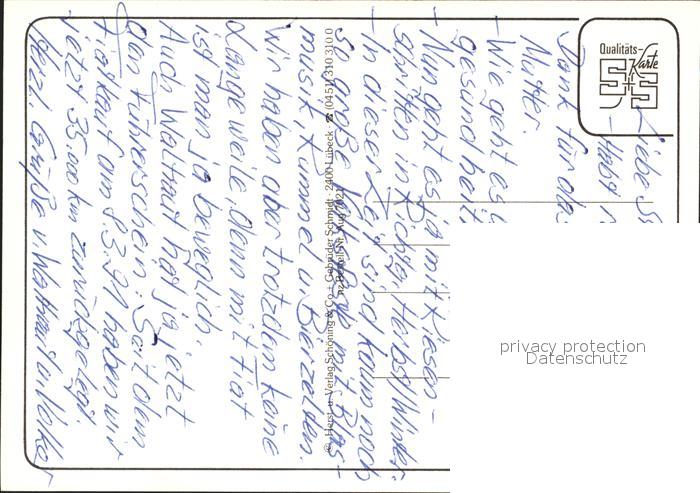 Liebe
- Habt
Dank für das
Mutter.
- Wie geht es
gesundheit
- Nun geht es ja mit Riesen-
schritten in Richtg. Herbst/Winter.
- In dieser Zeit sind kaum noch
so große Volksfeste mit Blas-
musik, Rummel u. Bierzelten.
Wir haben aber trotzdem keine
Langeweile, denn mit Fiat
ist man ja beweglich.
Auch Waltraut hat ja jetzt
den Führerschein. Seit dem
Fiatkauf am 8.3.91 haben wir
jetzt 35000 km zurückgelegt
Herzl. Grüße v. Waltraut u. Volker
Qualitäts-
Karte
S+S
© Herst. u. Verlag Schöning & Co. + Gebrüder Schmidt · 2400 Lübeck · ☎ (0451) 310310
privacy protection
Datenschutz